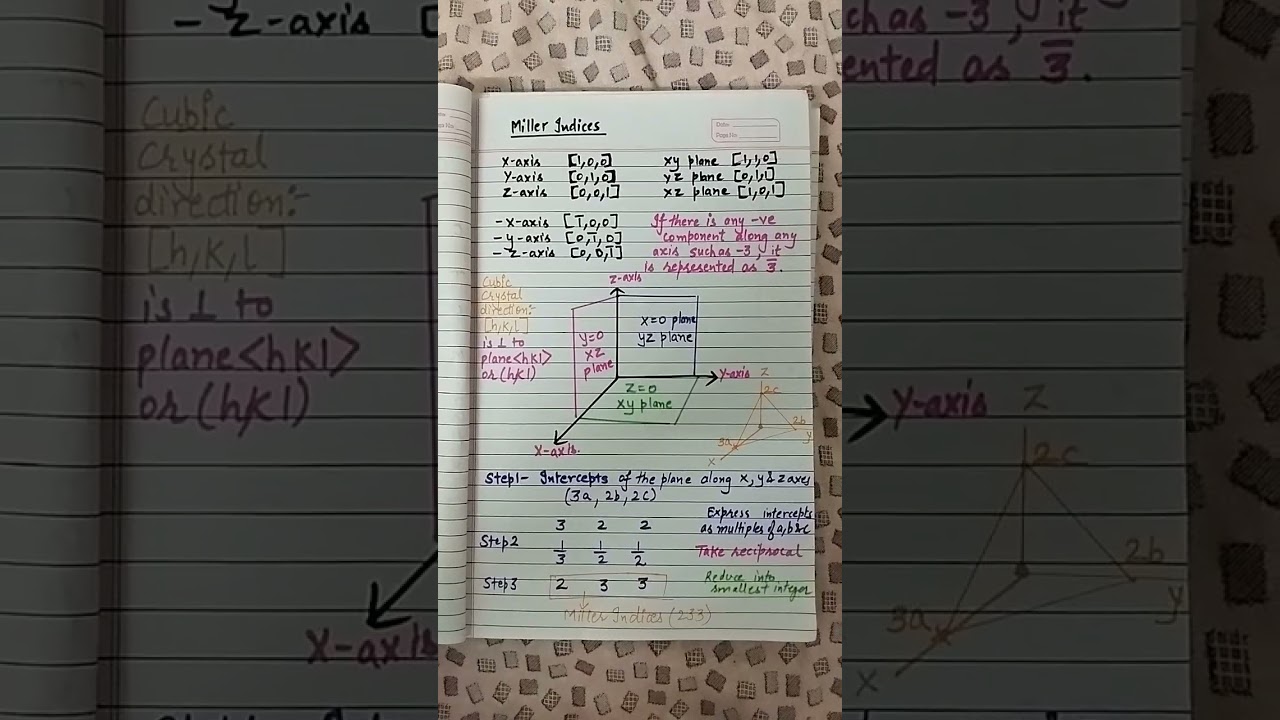 Miller Indices
Date: ________
Page No. ________
X-axis [1,0,0] xy plane [1,1,0]
Y-axis [0,1,0] yz plane [0,1,1]
Z-axis [0,0,1] xz plane [1,0,1]
-X-axis [1̅,0,0] If there is any -ve
-y-axis [0,1̅,0] component along any
-Z-axis [0,0,1̅] axis such as -3, it
is represented as 3̅.
Z-axis
Cubic
Crystal
direction:-
[h,k,l]
is ⊥ to
plane<hkl>
or (hkl)
y=0
xz
plane
x=0 plane
yz plane
Z=0
xy plane
Y-axis
X-axis.
Z
2c
2b
y
3a
X
Step1- Intercepts of the plane along x, y & z axes
(3a, 2b, 2c)
3 2 2 Express intercepts
as multiples of a,b&c
Step2 1/3 1/2 1/2 Take reciprocal
Step3 2 3 3 Reduce into
smallest integer
Miller Indices (233)
-Z-axis [
Cubic
Crystal
direction:-
[h,k,l]
is ⊥ to
plane<hkl>
or (hkl)
X-axis
ch as -3, it
ented as 3̅.
Y-axis
Z
2c
2b
y
3a
X